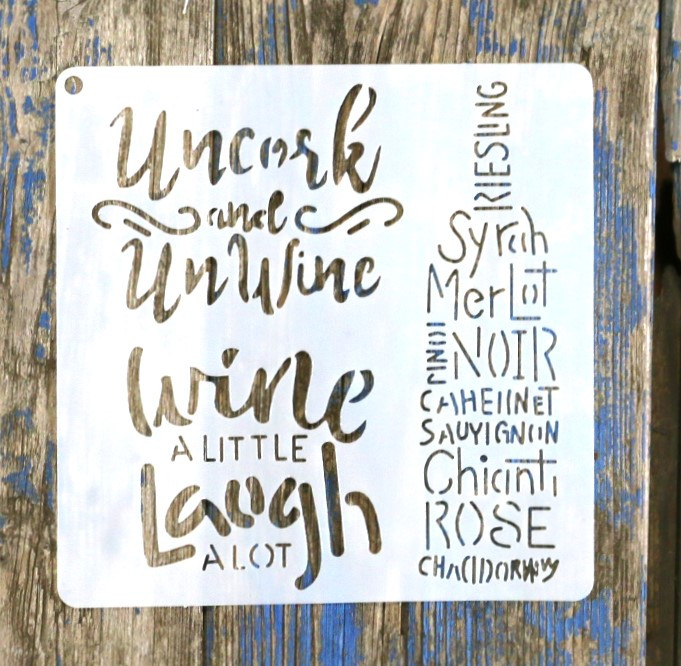 Uncork
and
UnWine
Wine
A LITTLE
Laugh
A LOT
RIESLING
Syrah
MerLot
PINOT NOIR
CABERNET
SAUVIGNON
Chianti
ROSE
CHARDONNAY